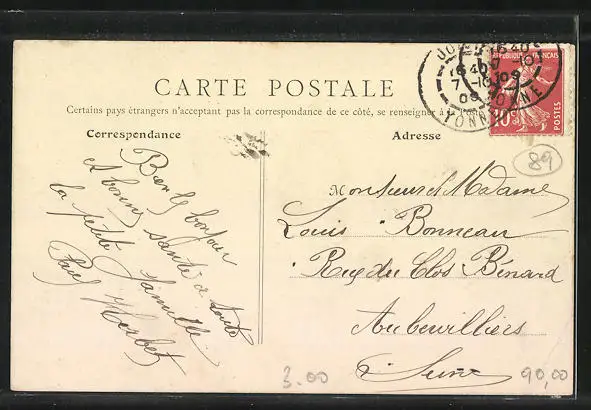 CARTE POSTALE
Certains pays étrangers n'acceptant pas la correspondance de ce côté, se renseigner à la Poste
Correspondance
Adresse
Bien le bonjour
et bonne santé a toute
la petite famille
Paul
Monsieur et Madame
Louis Bonneau
Rue du Clos Bénard
Aubevilliers
Seine
REPUBLIQUE FRANÇAISE
10c
POSTES
YONNE
16 40
7 -10
09
89
3.00
90,00